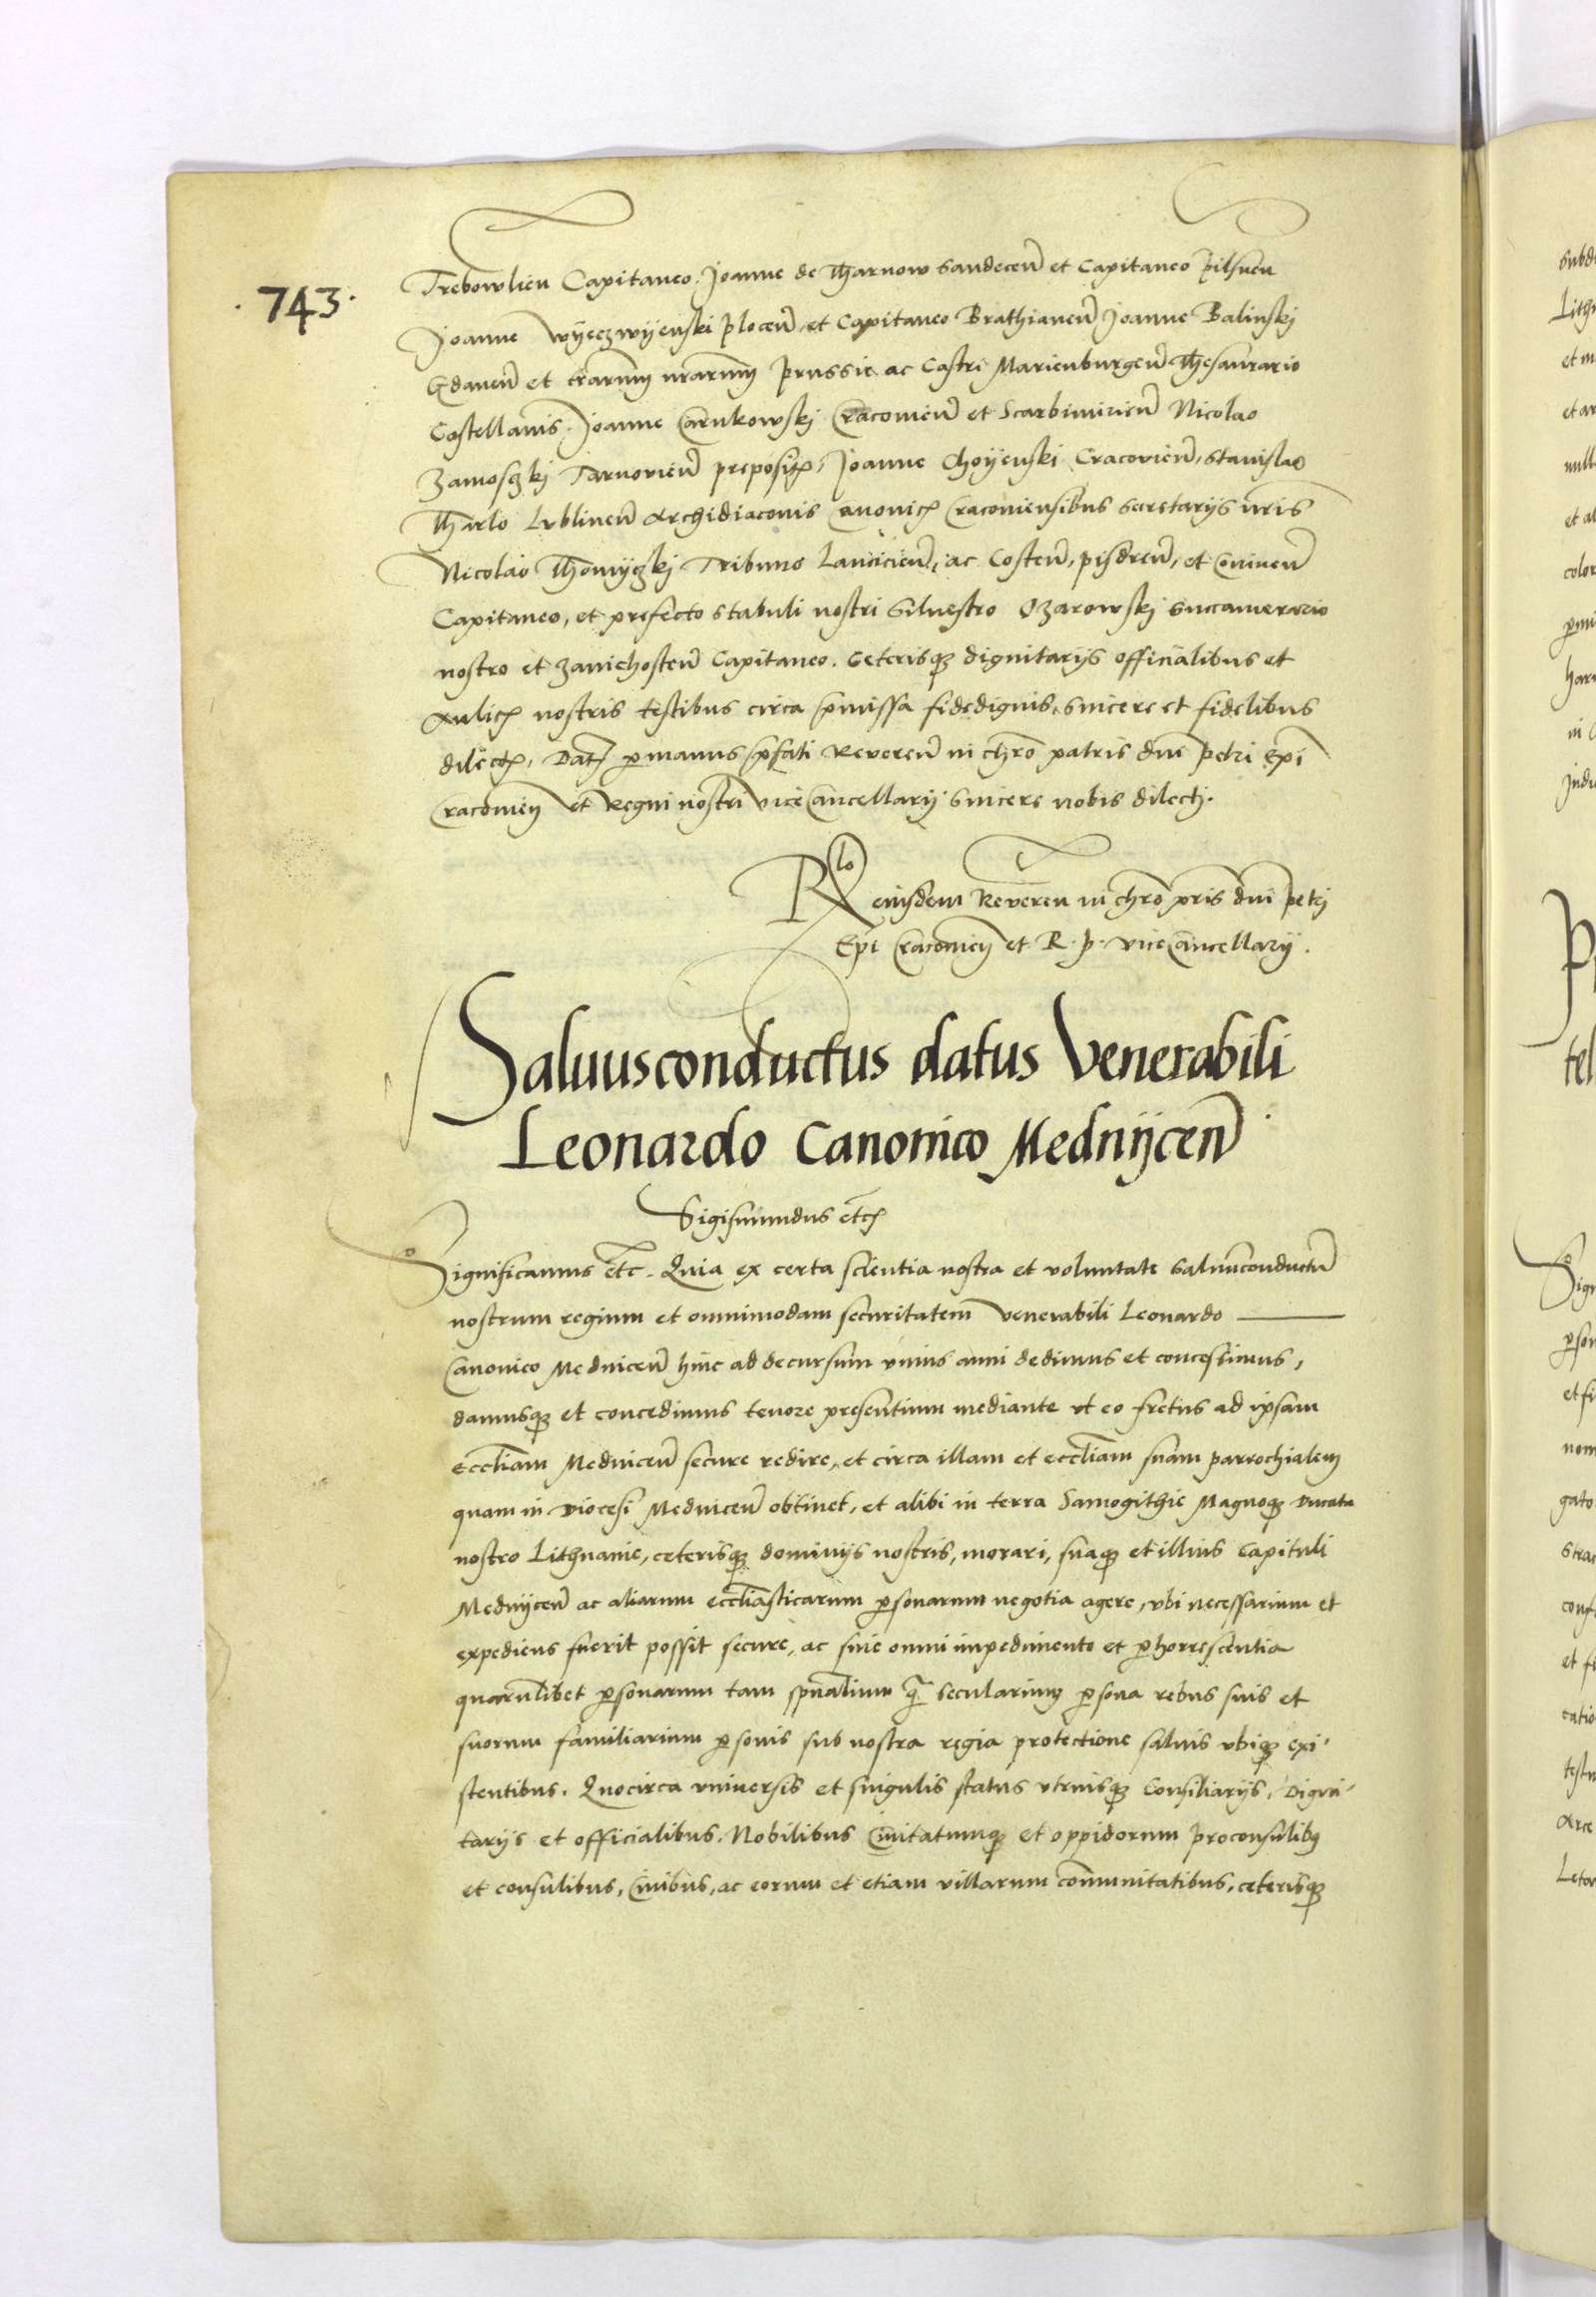 ·743·
Trebowlien Capitaneo. Joanne de Tharnow Sandecen̄ et Capitaneo pilsnen
Joanne Wyeczwyenski plocen̄ et Capitaneo Brathianen̄ Joanne Balinski
Gdanen̄ et tr̄arum nr̄arum prussie ac Castri Marienburgen̄ Thesaurario
Castellanis. Joanne Carnkowskj Cracouien̄ et Scarbimirien̄ Nicolao
Zamoszkj Tarnovien̄ prepositꝭ, Joanne Choyenski Cracovien̄, Stanislao
Tharlo Lublinen̄ Archidiaconis Canonicꝭ Cracouiensibus Secretarijs nr̄is
Nicolao Thomyczkj Tribuno Lancicien̄, ac Costen̄, pisdren̄, et Coninen̄
Capitaneo, et prefecto stabuli nostri Siluestro Ozarowskj Succamerario
nostro et Zavichosten̄ Capitaneo. Ceterisqꝫ dignitarijs officialibus et
Aulicꝭ nostris testibus circa p̄missa fidedignis, sincere et fidelibus
dilectꝭ, Datꝭ p manus p̄fati Reveren̄ in chr̄o patris dn̄i petri Ep̄i
Cracouien̄ et Regni nostri viceCancellarij sincere nobis dilectj.
Rlo eiusdem Reveren in chr̄o pr̄is dn̄i petrj
Ep̄i Cracouien̄ et R. p. viceCancellarij.
Saluusconductus datus Venerabili
Leonardo Canonico Mednijcen̄
Sigismundus etcꝭ
Significamus etc. Quia ex certa scientia nostra et voluntate saluumconductū
nostrum regium et omnimodam securitatem venerabili Leonardo
Canonico Mednicen̄ hinc ad decursum vnius anni dedimus et concessimus,
damusqꝫ et concedimus tenore presentium mediante vt eo fretus ad ipsam
eccl̄iam Mednicen̄ secure redire, et circa illam et eccl̄iam suam parrochialem
quam in Diocesi Mednicen̄ obtinet, et alibi in terra Samogithie Magnoqꝫ Ducatu
nostro Lithuanie, ceterisqꝫ dominijs nostris, morari, suaqꝫ et illius Capituli
Mednijcen̄ ac aliarum eccl̄iasticarum ꝑsonarum negotia agere, vbi necessarium et
expediens fuerit possit secure, ac sine omni impedimento et ꝑhorrescentia
quarūlibet ꝑsonarum tam spūalium q̄ secularium ꝑsona rebus suis et
suorum familiarium ꝑsonis sub nostra regia protectione saluis vbiqꝫ exi-
stentibus. Quocirca vniuersis et singulis status vtriusqꝫ Consiliarijs, Digni-
tarijs et officialibus. Nobilibus Ciuitatumqꝫ et oppidorum proconsulibꝯ
et consulibus, Ciuibus, ac eorum et etiam villarum com̄unitatibus, ceterisqꝫ